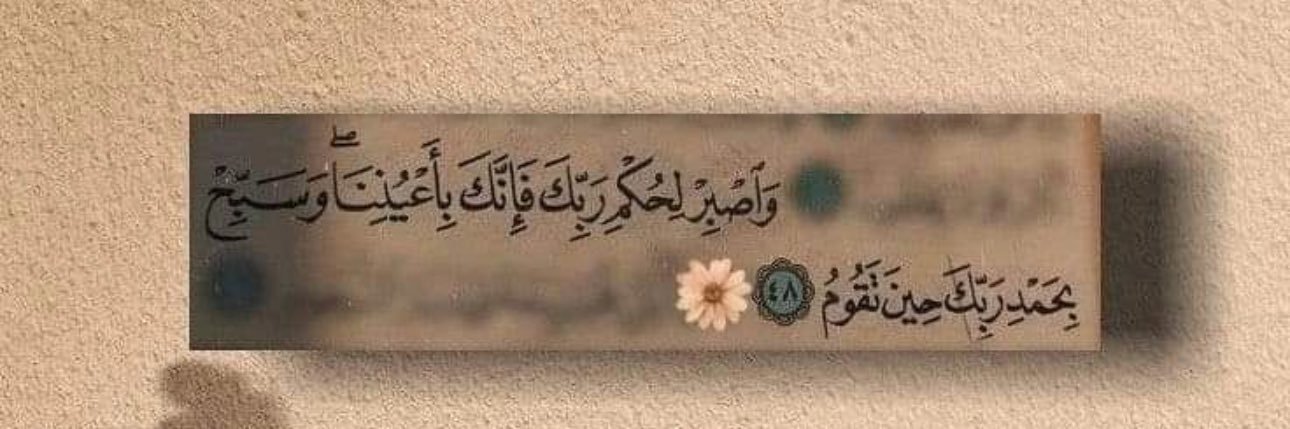 وَٱصْبِرْ لِحُكْمِ رَبِّكَ فَإِنَّكَ بِأَعْيُنِنَا ۖ وَسَبِّحْ
بِحَمْدِ رَبِّكَ حِينَ تَقُومُ ٤٨